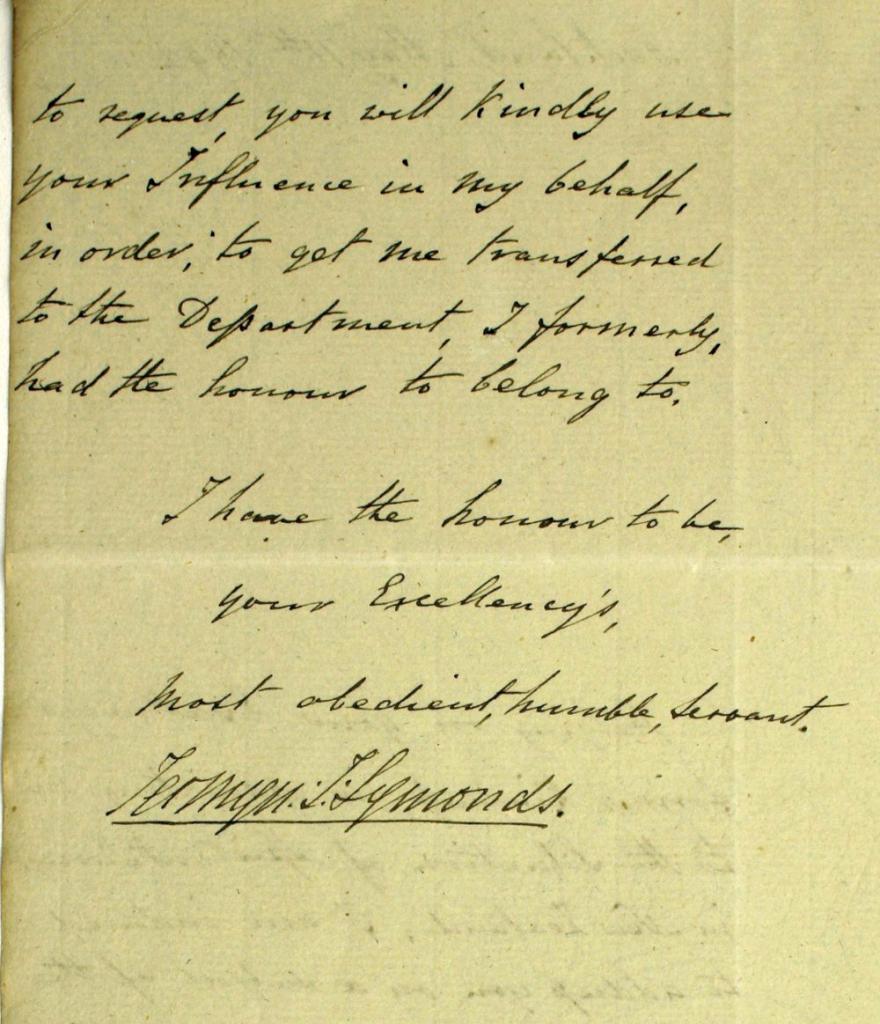 to request, you will kindly use
your Influence in my behalf,
in order, to get me transferred
to the Department, I formerly,
had the honour to belong to.
I have the honour to be,
your Excellency's,
most obedient, humble, servant.
Jermyn: J: Symonds.